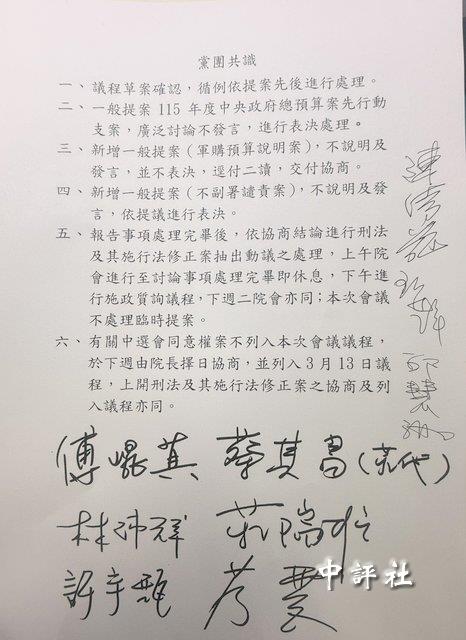 黨團共識
一、議程草案確認，循例依提案先後進行處理。
二、一般提案 115 年度中央政府總預算案先行動
支案，廣泛討論不發言，進行表決處理。
三、新增一般提案（軍購預算說明案），不說明及
發言，並不表決，逕付二讀，交付協商。
四、新增一般提案（不副署譴責案），不說明及發
言，依提議進行表決。
五、報告事項處理完畢後，依協商結論進行刑法
及其施行法修正案抽出動議之處理，上午院
會進行至討論事項處理完畢即休息，下午進
行施政質詢議程，下週二院會亦同；本次會議
不處理臨時提案。
六、有關中選會同意權案不列入本次會議議程，
於下週由院長擇日協商，並列入 3 月 13 日議
程，上開刑法及其施行法修正案之協商及列
入議程亦同。
傅崐萁 蔡其昌
林沛祥
許宇甄
中評社